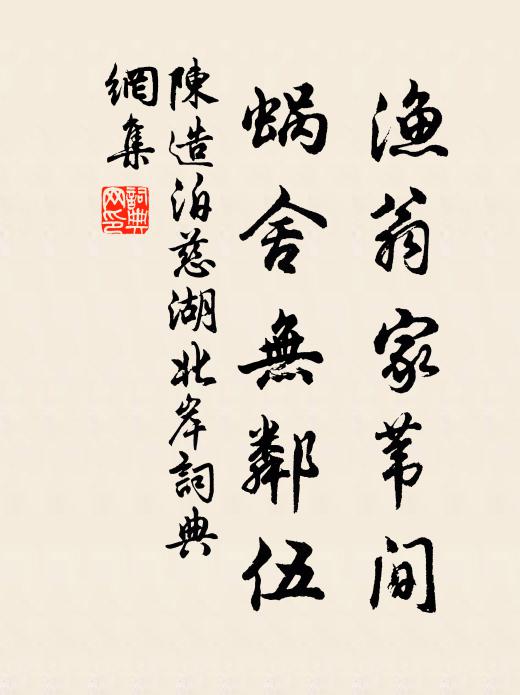 渔翁家苇间
蜗舍無鄰伍
陳造泊慈湖北岸詞典
網集
詞典
网印